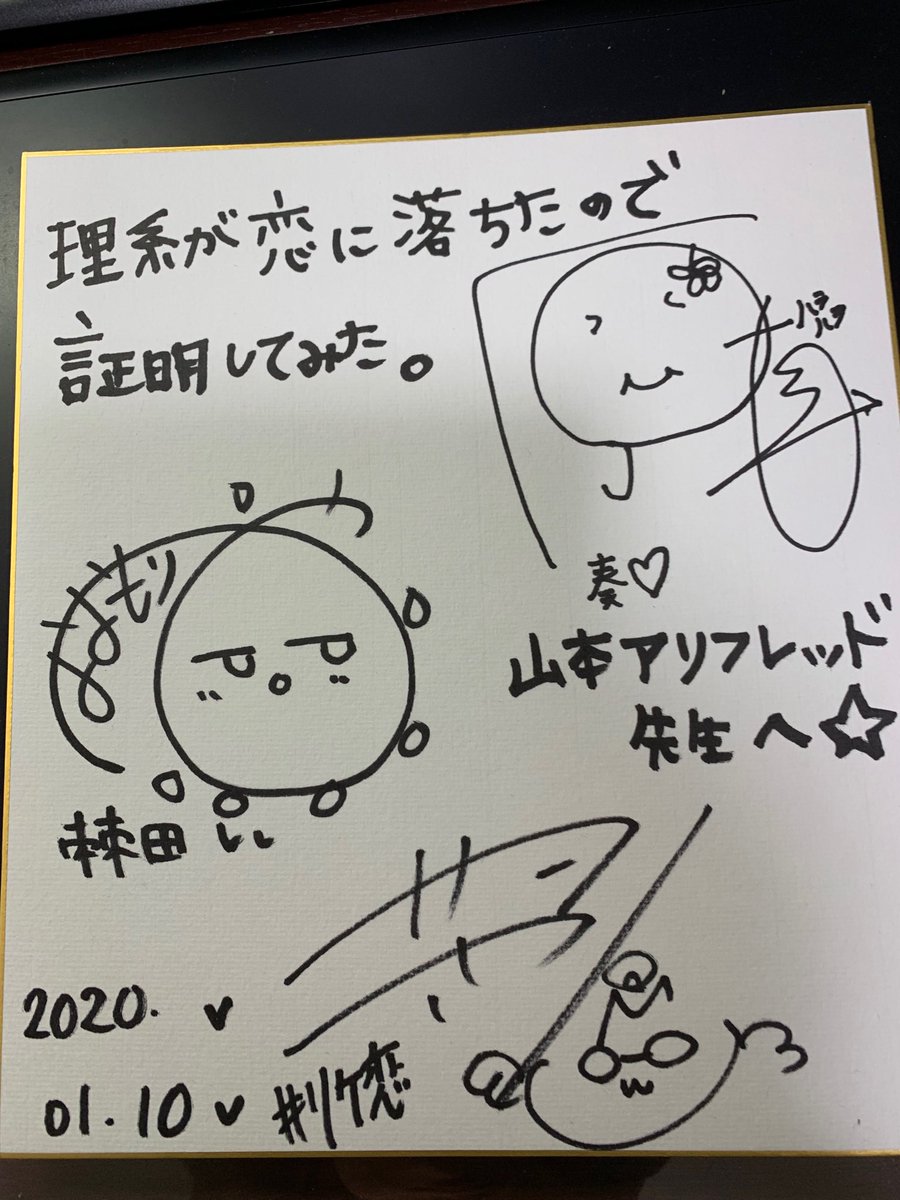 理系が恋に落ちたので
証明してみた。
奏♡
山本アリフレッド
先生へ☆
棘田
2020.
01.10
#リケ恋